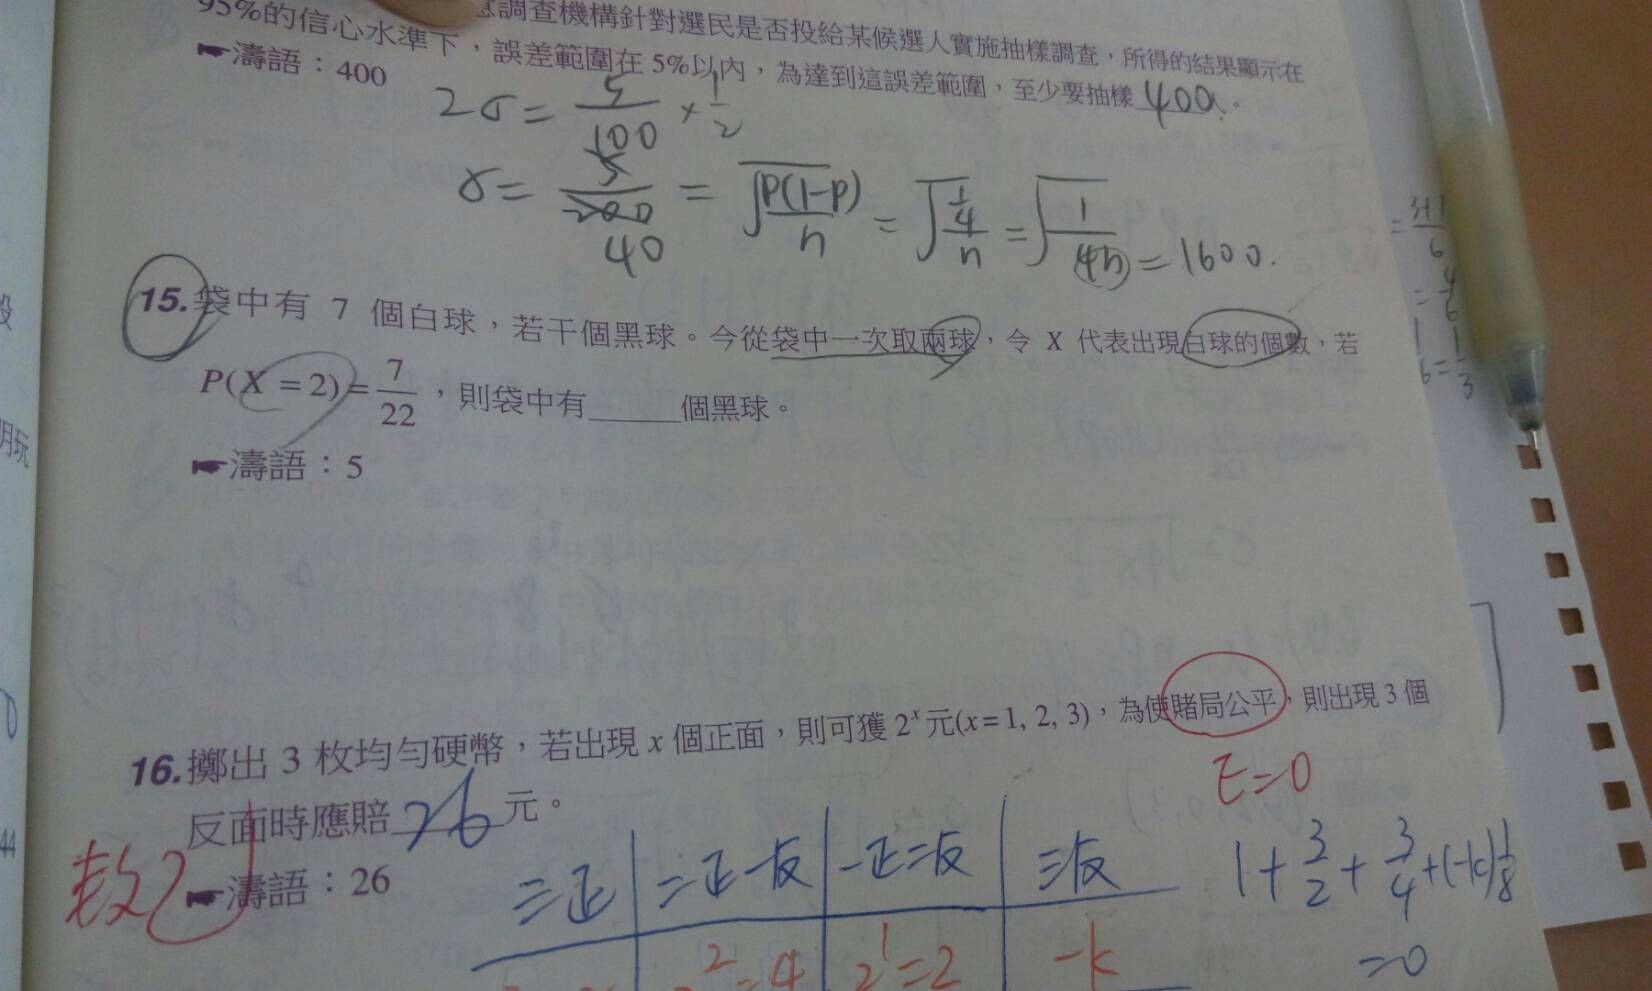 調查機構針對選民是否投給某候選人實施抽樣調查，所得的結果顯示在
95%的信心水準下，誤差範圍在5%以內，為達到這誤差範圍，至少要抽樣 400 。
☛濤語：400
2σ = 5/100 × 1/2
σ = 5/200 40 = √(P(1-P)/n) = √(1/4/n) = √(1/(4n)) = 1600.
15.袋中有 7 個白球，若干個黑球。今從袋中一次取兩球，令 X 代表出現白球的個數，若
P(X = 2) = 7/22，則袋中有______個黑球。
☛濤語：5
16.擲出 3 枚均勻硬幣，若出現 x 個正面，則可獲 2ˣ元(x = 1, 2, 3)，為使賭局公平，則出現 3 個
E=0
反面時應賠 26 元。
☛濤語：26
三正 二正一反 一正二反 三反
1 + 3/2 + 3/4 + (-k)1/8
=0
2²=4 2¹=2 -k